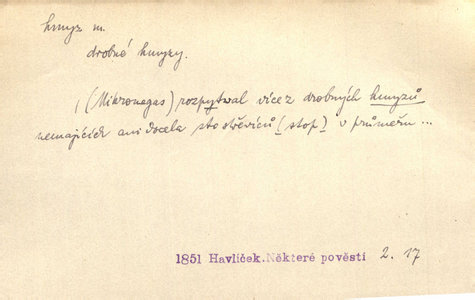 hmyz m.
drobné hmyzy.
(Mikromegas) rozpytwal více z drobných hmyzů
nemajících ani docela sto střevíců (stop) v průměru ...
1851 Havlíček.Některé pověsti 2. 17